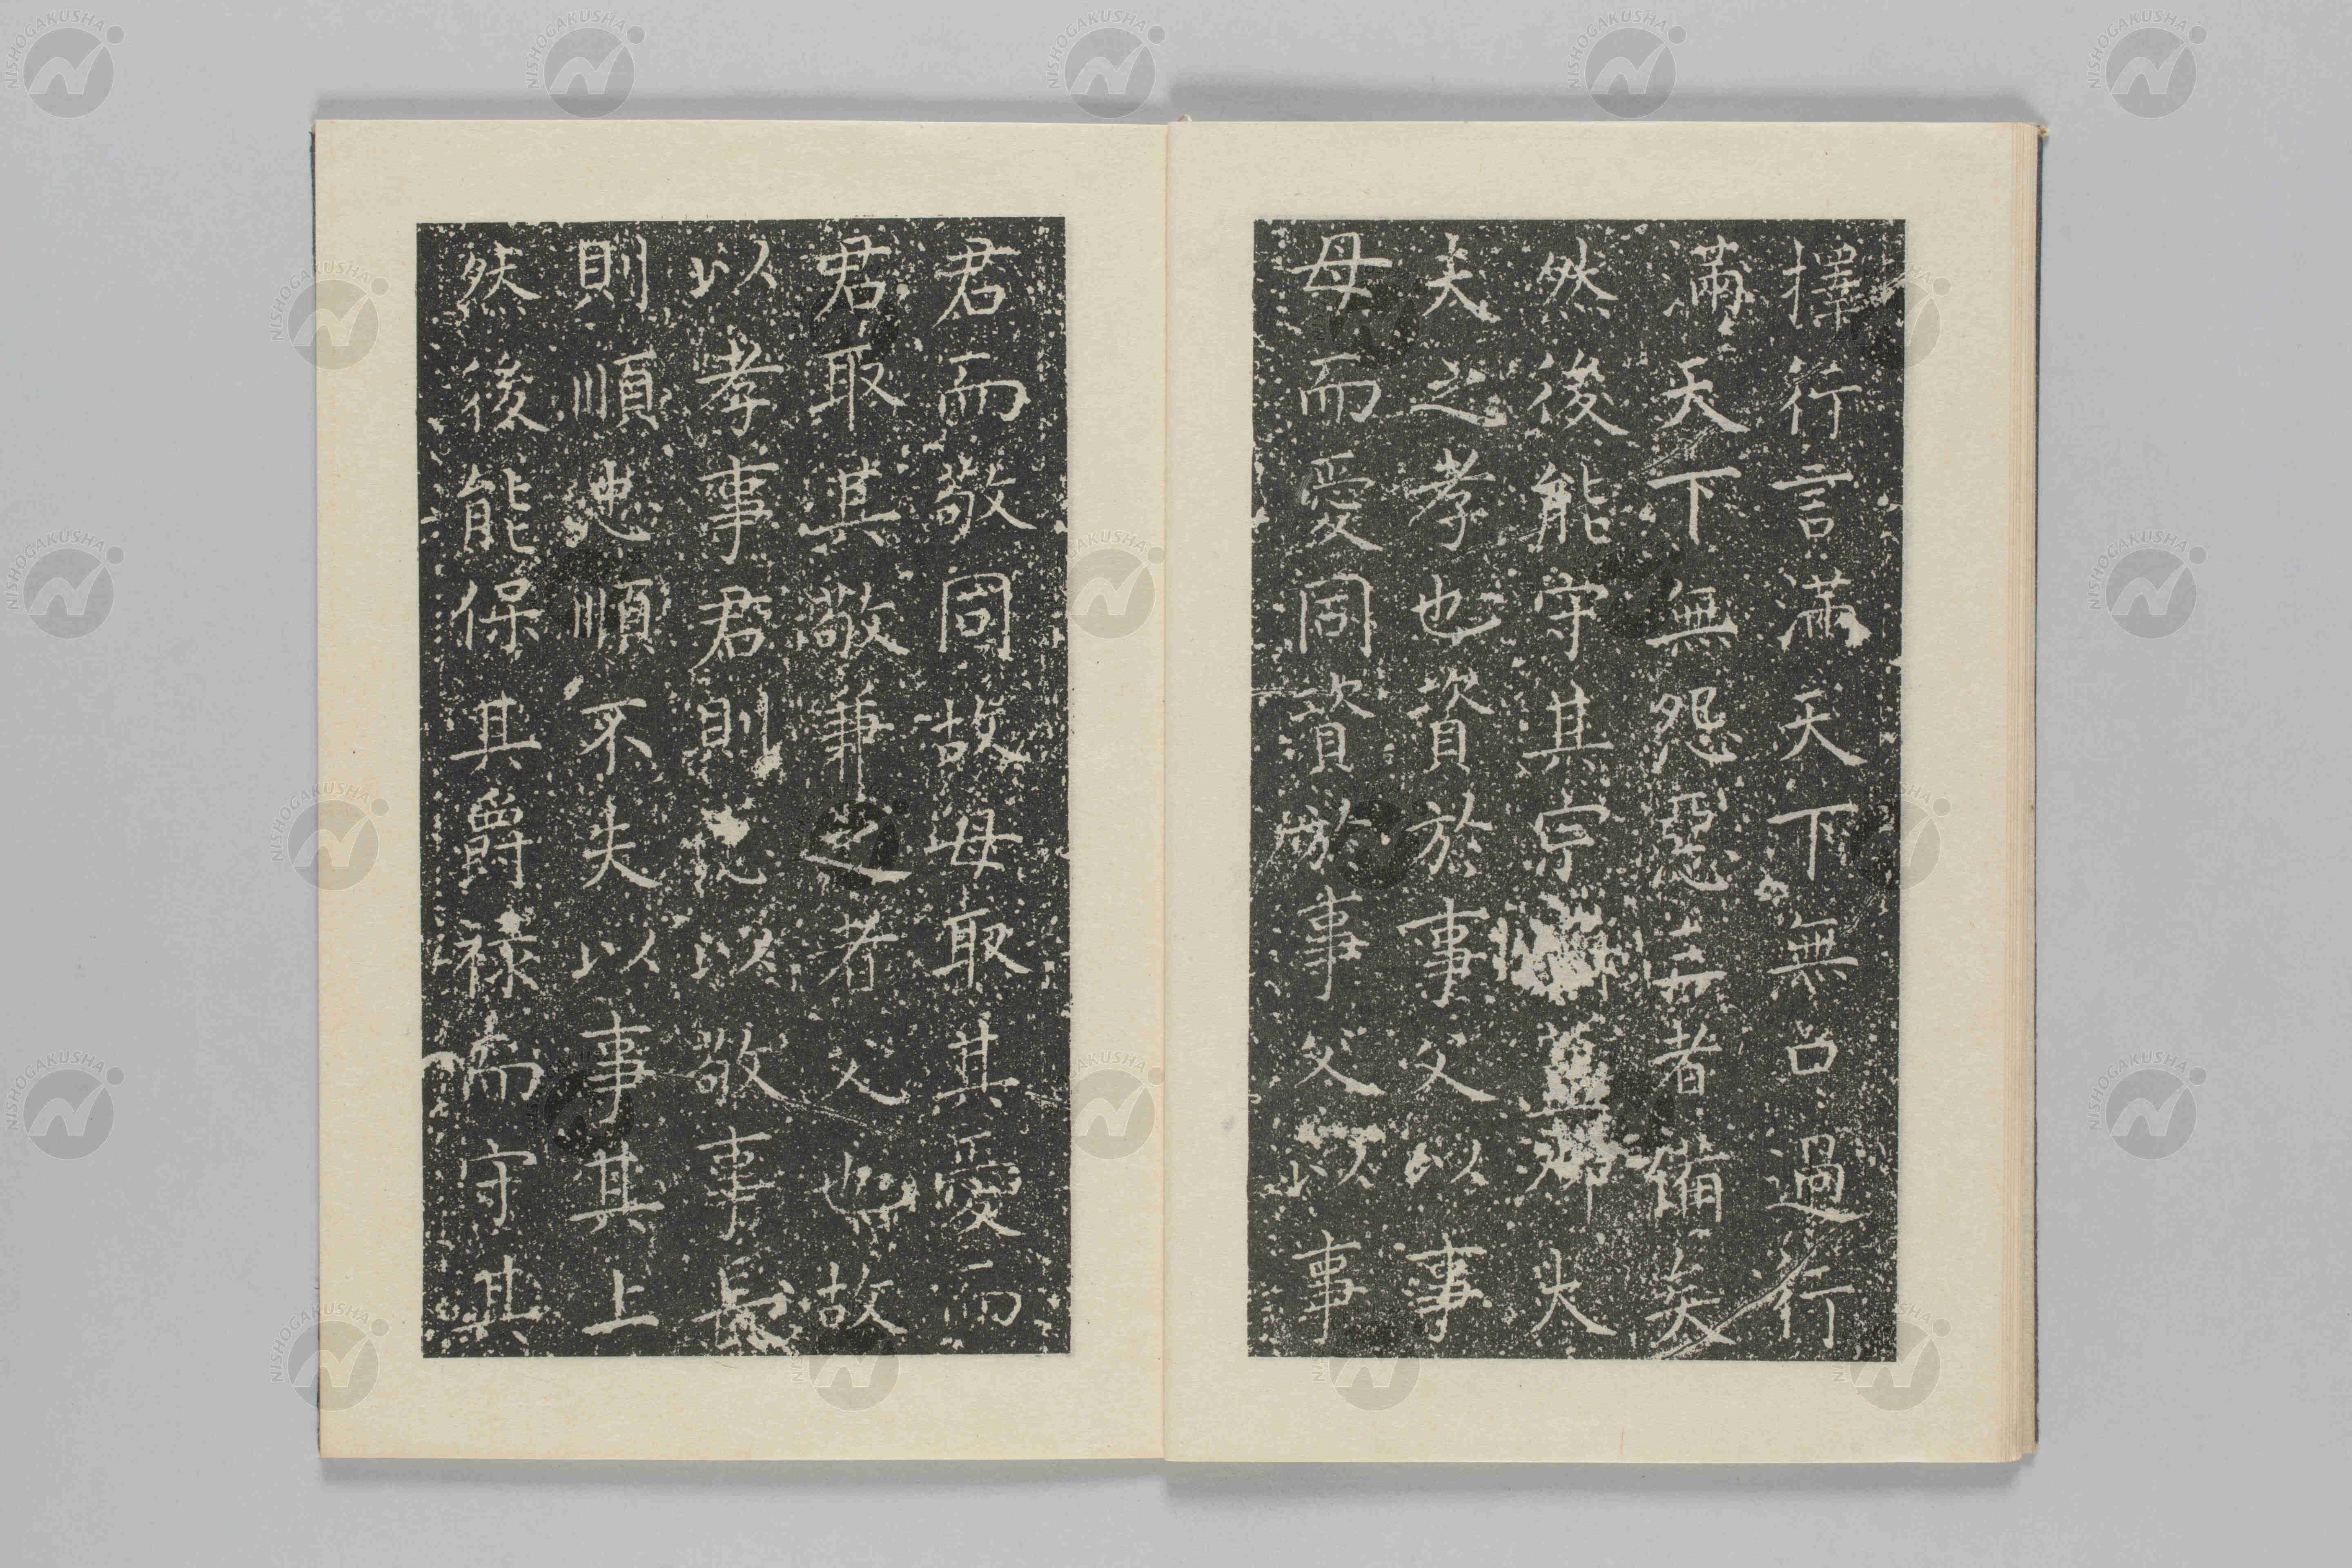 擇行言滿天下無口過行
滿天下無怨惡三者備矣
然後能守其宗廟蓋卿大
夫之孝也資於事父以事
母而愛同資於事父以事
君而敬同故母取其愛而
君取其敬兼之者父也故
以孝事君則忠以敬事長
則順忠順不失以事其上
然後能保其爵祿而守其
NISHOGAKUSHA